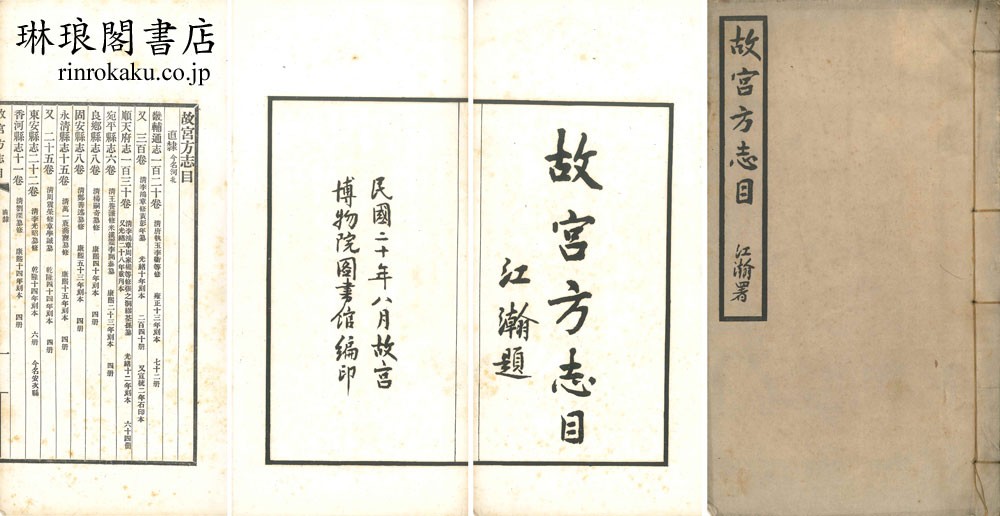 琳琅閣書店
rinrokaku.co.jp
故宮方志目
江瀚署
故宮方志目
江瀚題
民國二十年八月故宮
博物院圖書館編印
故宮方志目
直隸 今名河北
畿輔通志一百二十卷 清唐執玉李衛等修 雍正十三年刻本 七十二册
又 三百卷 清李鴻章修黃彭年纂 光緒十年刻本 二百四十册 又宣統二年石印本
順天府志一百三十卷 清李鴻章周家楣等修張之洞繆荃孫纂 光緒十二年刻本 六十四册 又光緒二十八年重刊本
宛平縣志六卷 清王養濂修米漢雯李開泰纂 康熙二十三年刻本 四册
良鄉縣志八卷 清楊嗣奇纂修 康熙四十年刻本 四册
固安縣志八卷 清鄭善述纂修 康熙五十三年刻本 四册
永清縣志十五卷 清萬一鼒纂修 康熙十五年刻本 四册
又 二十五卷 清周震榮修章學誠纂 乾隆四十四年刻本 四册
東安縣志二十二卷 清李光昭纂修 乾隆十四年刻本 六册 今名安次縣
香河縣志十一卷 清劉深纂修 康熙十四年刻本 四册
故宮方志目 直隸